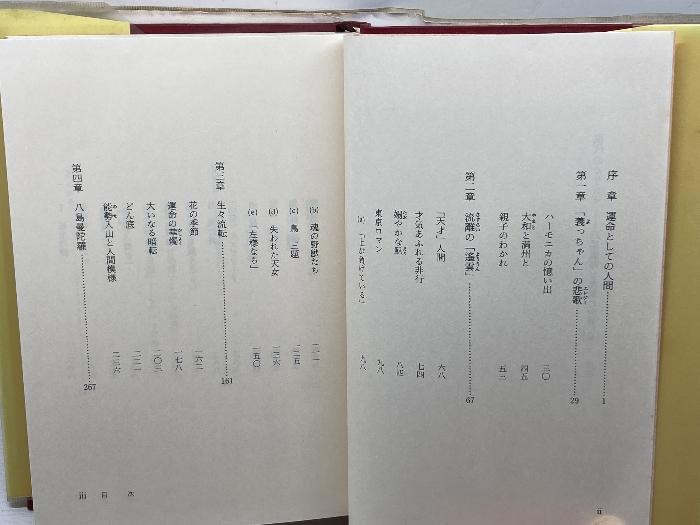 序章 運命としての人間……1
第一章 「義っちゃん」の悲歌……29
ハーモニカの憶い出 三〇
大和と満州と 四五
親子のわかれ 五三
第二章 流離の「遙雲」……67
「天才」人間 六八
才気あふれる非行 七四
八四
東京ロマン 九八
(a) 九八
ii
(b) 魂の野獣たち
(c) 鳥三題 一二五
(d) 失われた天女 一三六
(e) 「左様なら」 一五〇
第三章 生々流転……161
花の季節 一六二
運命の華燭 一七八
大いなる暗転 二〇三
どん底 二二一
能勢入山と人間模様 二三六
第四章 八島曼陀羅……267
iii 目次